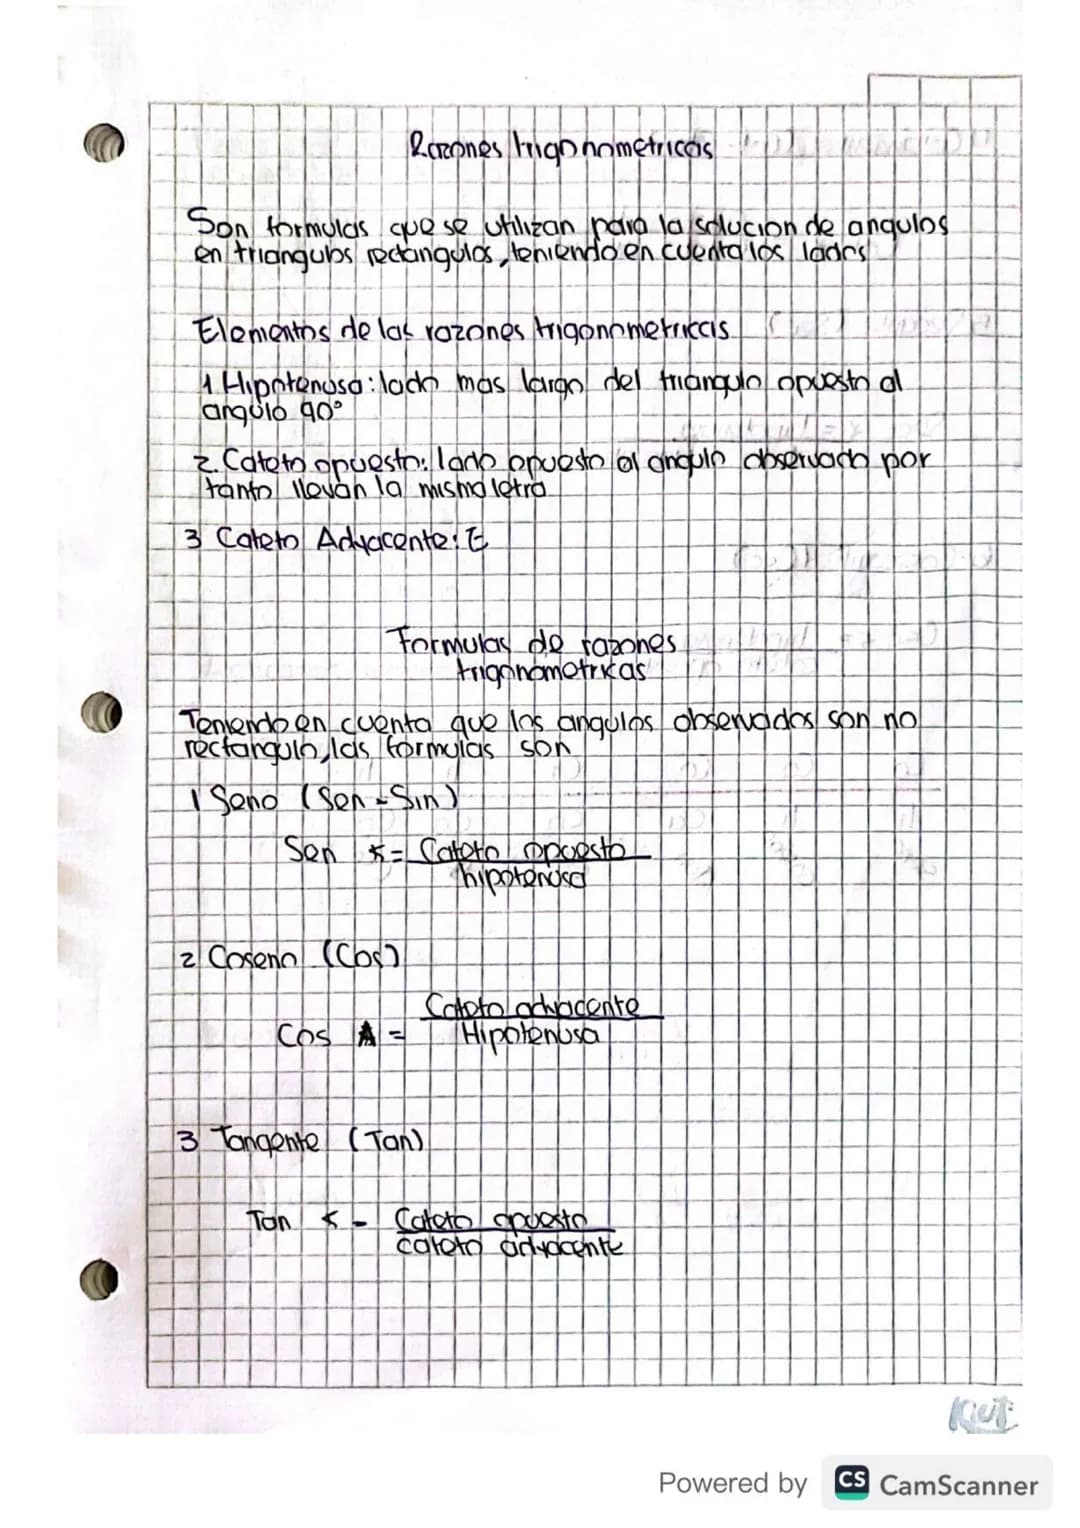 Razones trigonnometricas
Son formulas que se utilizan para la solucion de angulos
en triangulos rectangulos, teniendo en cuenta los lados
Elementos de las razones trigonometricas
1 Hipotenusa: lado mas largo del triangulo opuesto al
angulo 90°
2. Cateto opuesto: lado opuesto al angulo observado por
tanto llevan la misma letra
3 Cateto Adyacente: E
Formulas de razones
trigonometricas
Teniendo en cuenta que los angulos observados son no
rectangulo, las formulas son
1 Seno (Sen - Sin)
Sen ∢ = Cateto opuesto
hipotenusa
2 Coseno (Cos)
Cateto adyacente
Cos A =
Hipotenusa
3 Tangente (Tan)
Tan ∢ - Cateto opuesto
cateto adyacente
Powered by CS CamScanner